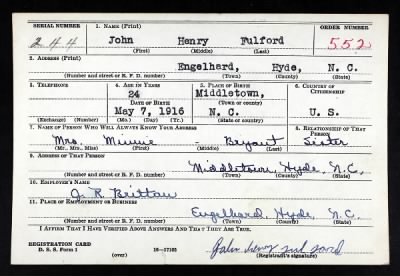 SERIAL NUMBER 1. NAME (Print) ORDER NUMBER
244 John Henry Fulford 552
(First) (Middle) (Last)
2. ADDRESS (Print)
Engelhard, Hyde, N. C.
(Number and street or R. F. D. number) (Town) (County) (State)
3. TELEPHONE 4. AGE IN YEARS 5. PLACE OF BIRTH 6. COUNTRY OF CITIZENSHIP
24 Middletown,
DATE OF BIRTH (Town or county)
May 7, 1916 N. C. U. S.
(Exchange) (Number) (Mo.) (Day) (Yr.) (State or country)
7. NAME OF PERSON WHO WILL ALWAYS KNOW YOUR ADDRESS 8. RELATIONSHIP OF THAT PERSON
Mrs. Minnie - Bryant Sister
(Mr., Mrs., Miss) (First) (Middle) (Last)
9. ADDRESS OF THAT PERSON
Middletown, Hyde, N.C.
(Number and street or R. F. D. number) (Town) (County) (State)
10. EMPLOYER'S NAME
J. R. Brittan
11. PLACE OF EMPLOYMENT OR BUSINESS
Engelhard, Hyde, N.C.
(Number and street or R. F. D. number) (Town) (County) (State)
I AFFIRM THAT I HAVE VERIFIED ABOVE ANSWERS AND THAT THEY ARE TRUE.
REGISTRATION CARD
D. S. S. Form 1 (over) John henry
(Registrant's signature)